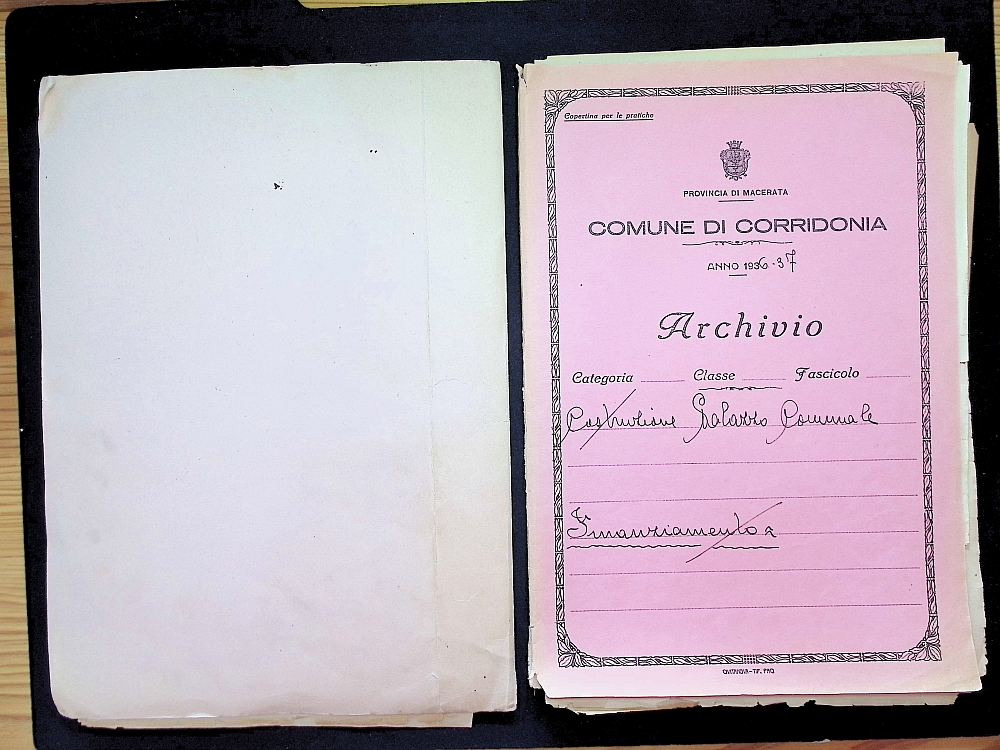 Copertina per le pratiche
PROVINCIA DI MACERATA
COMUNE DI CORRIDONIA
ANNO 1936-37
Archivio
Categoria Classe Fascicolo
Costruzione Palazzo Comunale
Finanziamento